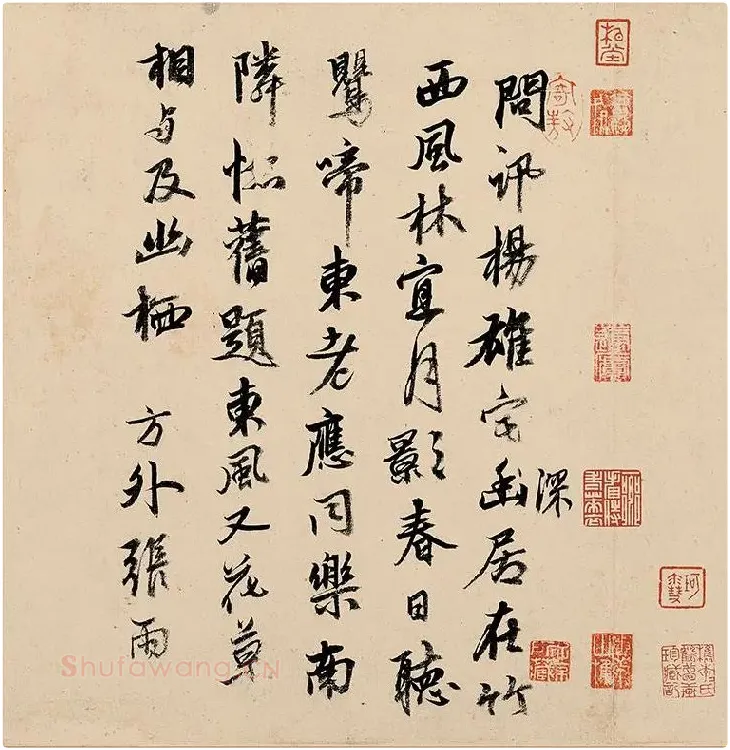 問訊楊雄宅幽居在竹
深
西風林宜月影春日聽
鸎啼東老應同樂南
隣舊題東風又花草
相与及幽栖 方外張雨
Shufawang.CN